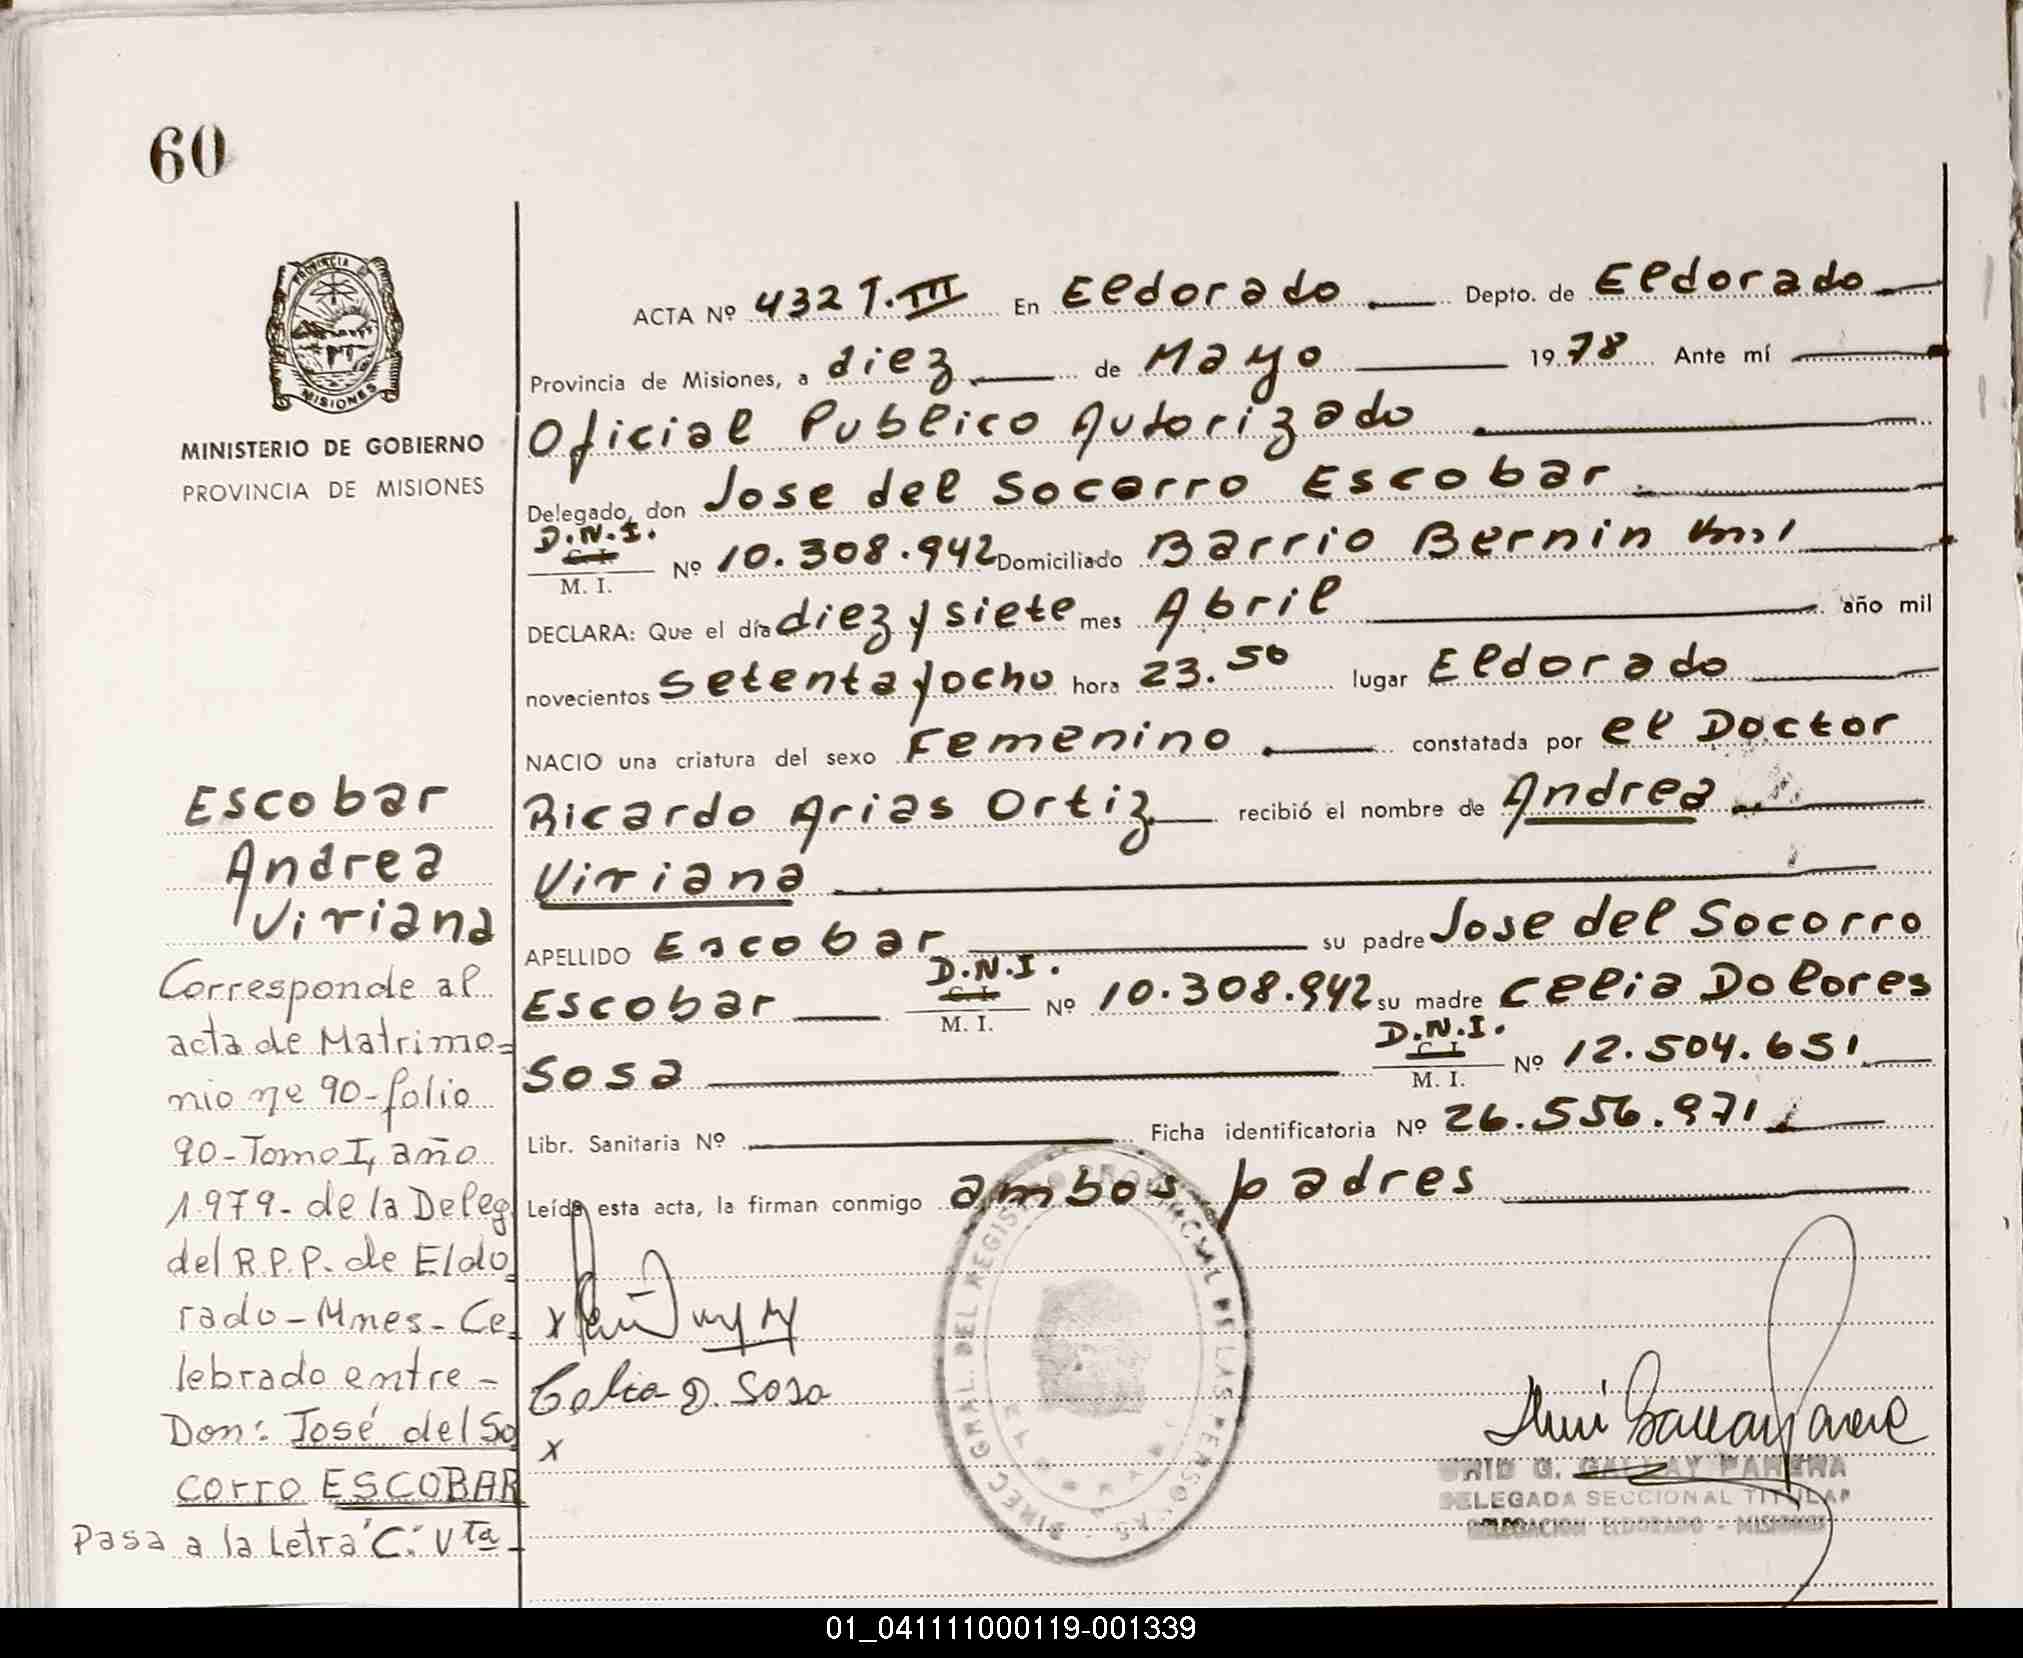 60
PROVINCIA DE
MISIONES
MINISTERIO DE GOBIERNO
PROVINCIA DE MISIONES
ACTA Nº 432 T. III En Eldorado Depto. de Eldorado
Provincia de Misiones, a diez de Mayo 19 78 Ante mí
Oficial Publico Autorizado
Delegado, don Jose del Socorro Escobar
D.N.I.
C. I.
M. I. Nº 10.308.942 Domiciliado Barrio Bernin Km 1
DECLARA: Que el día diez y siete mes Abril año mil
novecientos setenta y ocho hora 23.50 lugar Eldorado
NACIO una criatura del sexo Femenino constatada por el Doctor
Ricardo Arias Ortiz recibió el nombre de Andrea
Viviana
APELLIDO Escobar su padre Jose del Socorro
Escobar D.N.I. C. I. M. I. Nº 10.308.942 su madre Celia Dolores
Sosa D.N.I. C. I. M. I. Nº 12.504.651
Libr. Sanitaria Nº Ficha identificatoria Nº 26.556.971
Leída esta acta, la firman conmigo ambos padres
x
Celia D. Sosa
x
DIREC. GRAL. DEL REGISTRO PROVINCIAL DE LAS PERSONAS
G. GALLAY PANERA
DELEGADA SECCIONAL TITULAR
DELEGACION ELDORADO - MISIONES
Escobar
Andrea
Viviana
Corresponde al
acta de Matrimo=
nio nº 90-folio
90-Tomo I, año
1.979- de la Deleg
del R.P.P. de Eldo
rado-Mnes- Ce
lebrado entre-
Don: José del So
corro ESCOBAR
Pasa a la Letra "C". Vta-
01_041111000119-001339